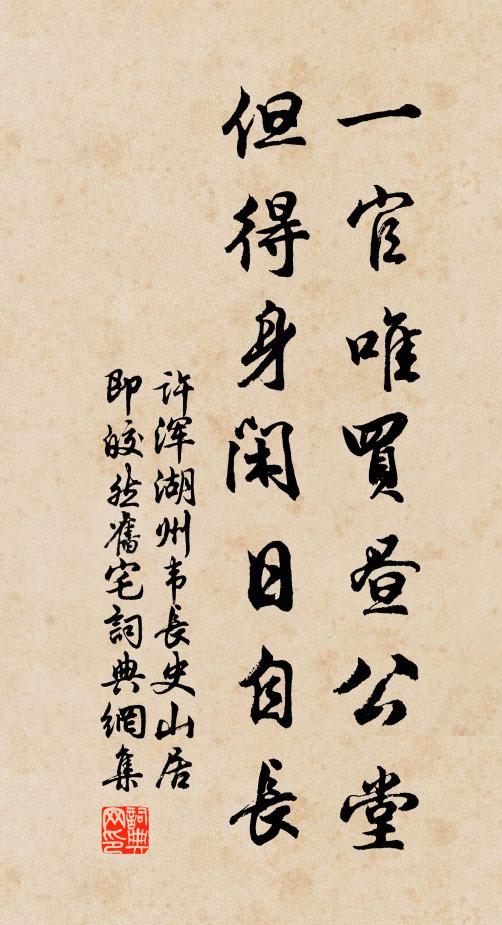 一官唯買昼公堂
但得身閑日自長
許渾湖州韦長史山居
即皎然舊宅詞典網集
詞典网印